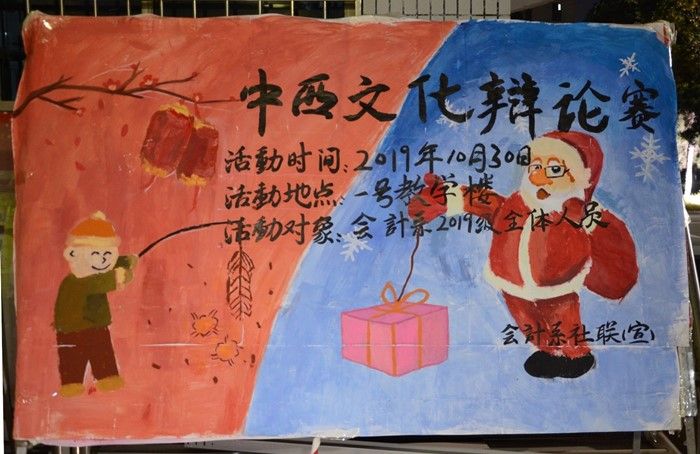 中西文化辩论赛
活動时间:2019年10月30日
活動地点:一号教学楼
活動对象:会計系2019级全体人员
会計系社联(宣)